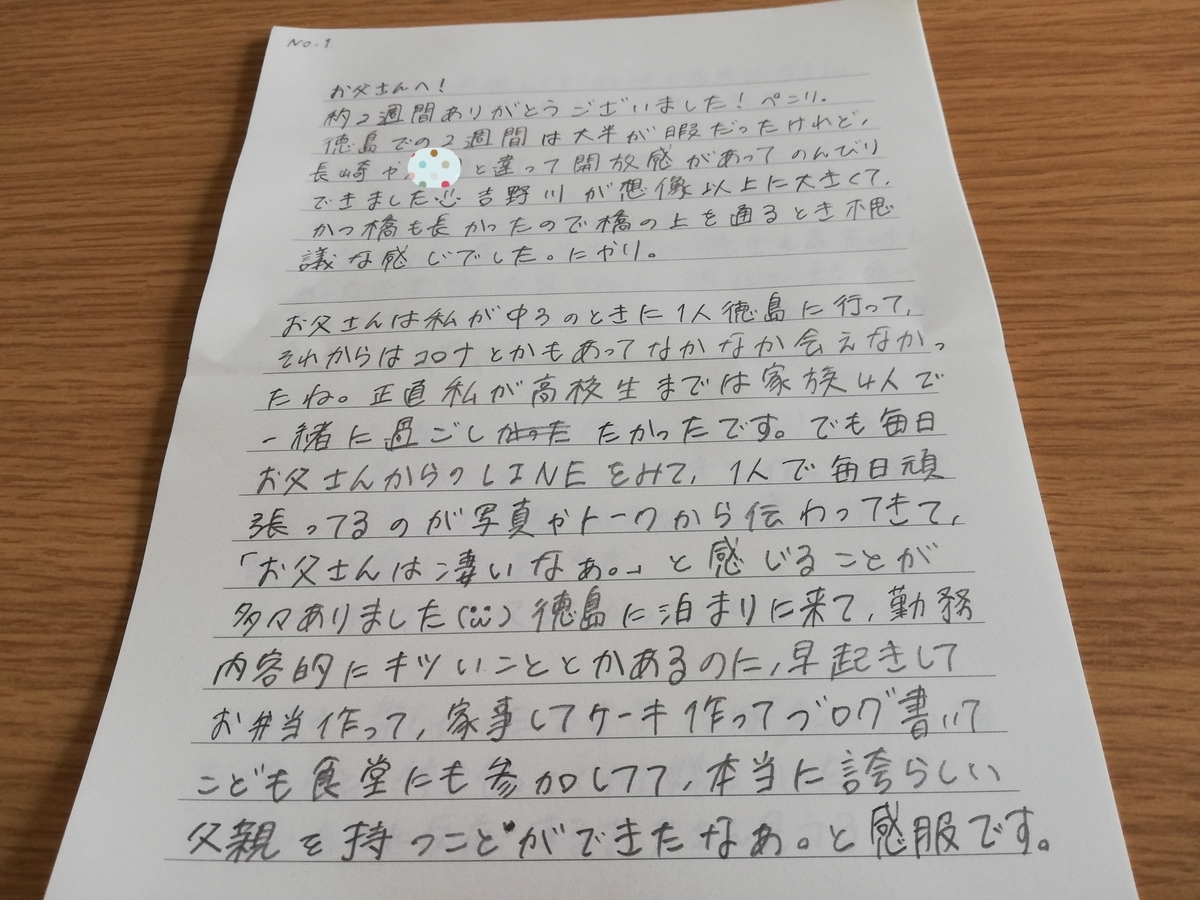 No.1
お父さんへ!
約2週間ありがとうございました!ペこり。
徳島での2週間は大半が暇だったけれど、
長崎や と違って開放感があってのんびり
できました 吉野川が想像以上に大きくて、
かつ橋も長かったので橋の上を通るとき不思
議な感じでした。にやり。
お父さんは私が中3のときに1人徳島に行って、
それからはコロナとかもあってなかなか会えなかっ
たね。正直私が高校生までは家族4人で
一緒に過ごし たかったです。でも毎日
お父さんからのLINEをみて、1人で毎日頑
張ってるのが写真やトークから伝わってきて、
「お父さんは凄いなぁ。」と感じることが
多々ありました(ü)徳島に泊まりに来て、勤務
内容的にキツいこととかあるのに、早起きして
お弁当作って、家事してケーキ作ってブログ書いて
こども食堂にも参加してて、本当に誇らしい
父親を持つことができたなぁ。と感服です。